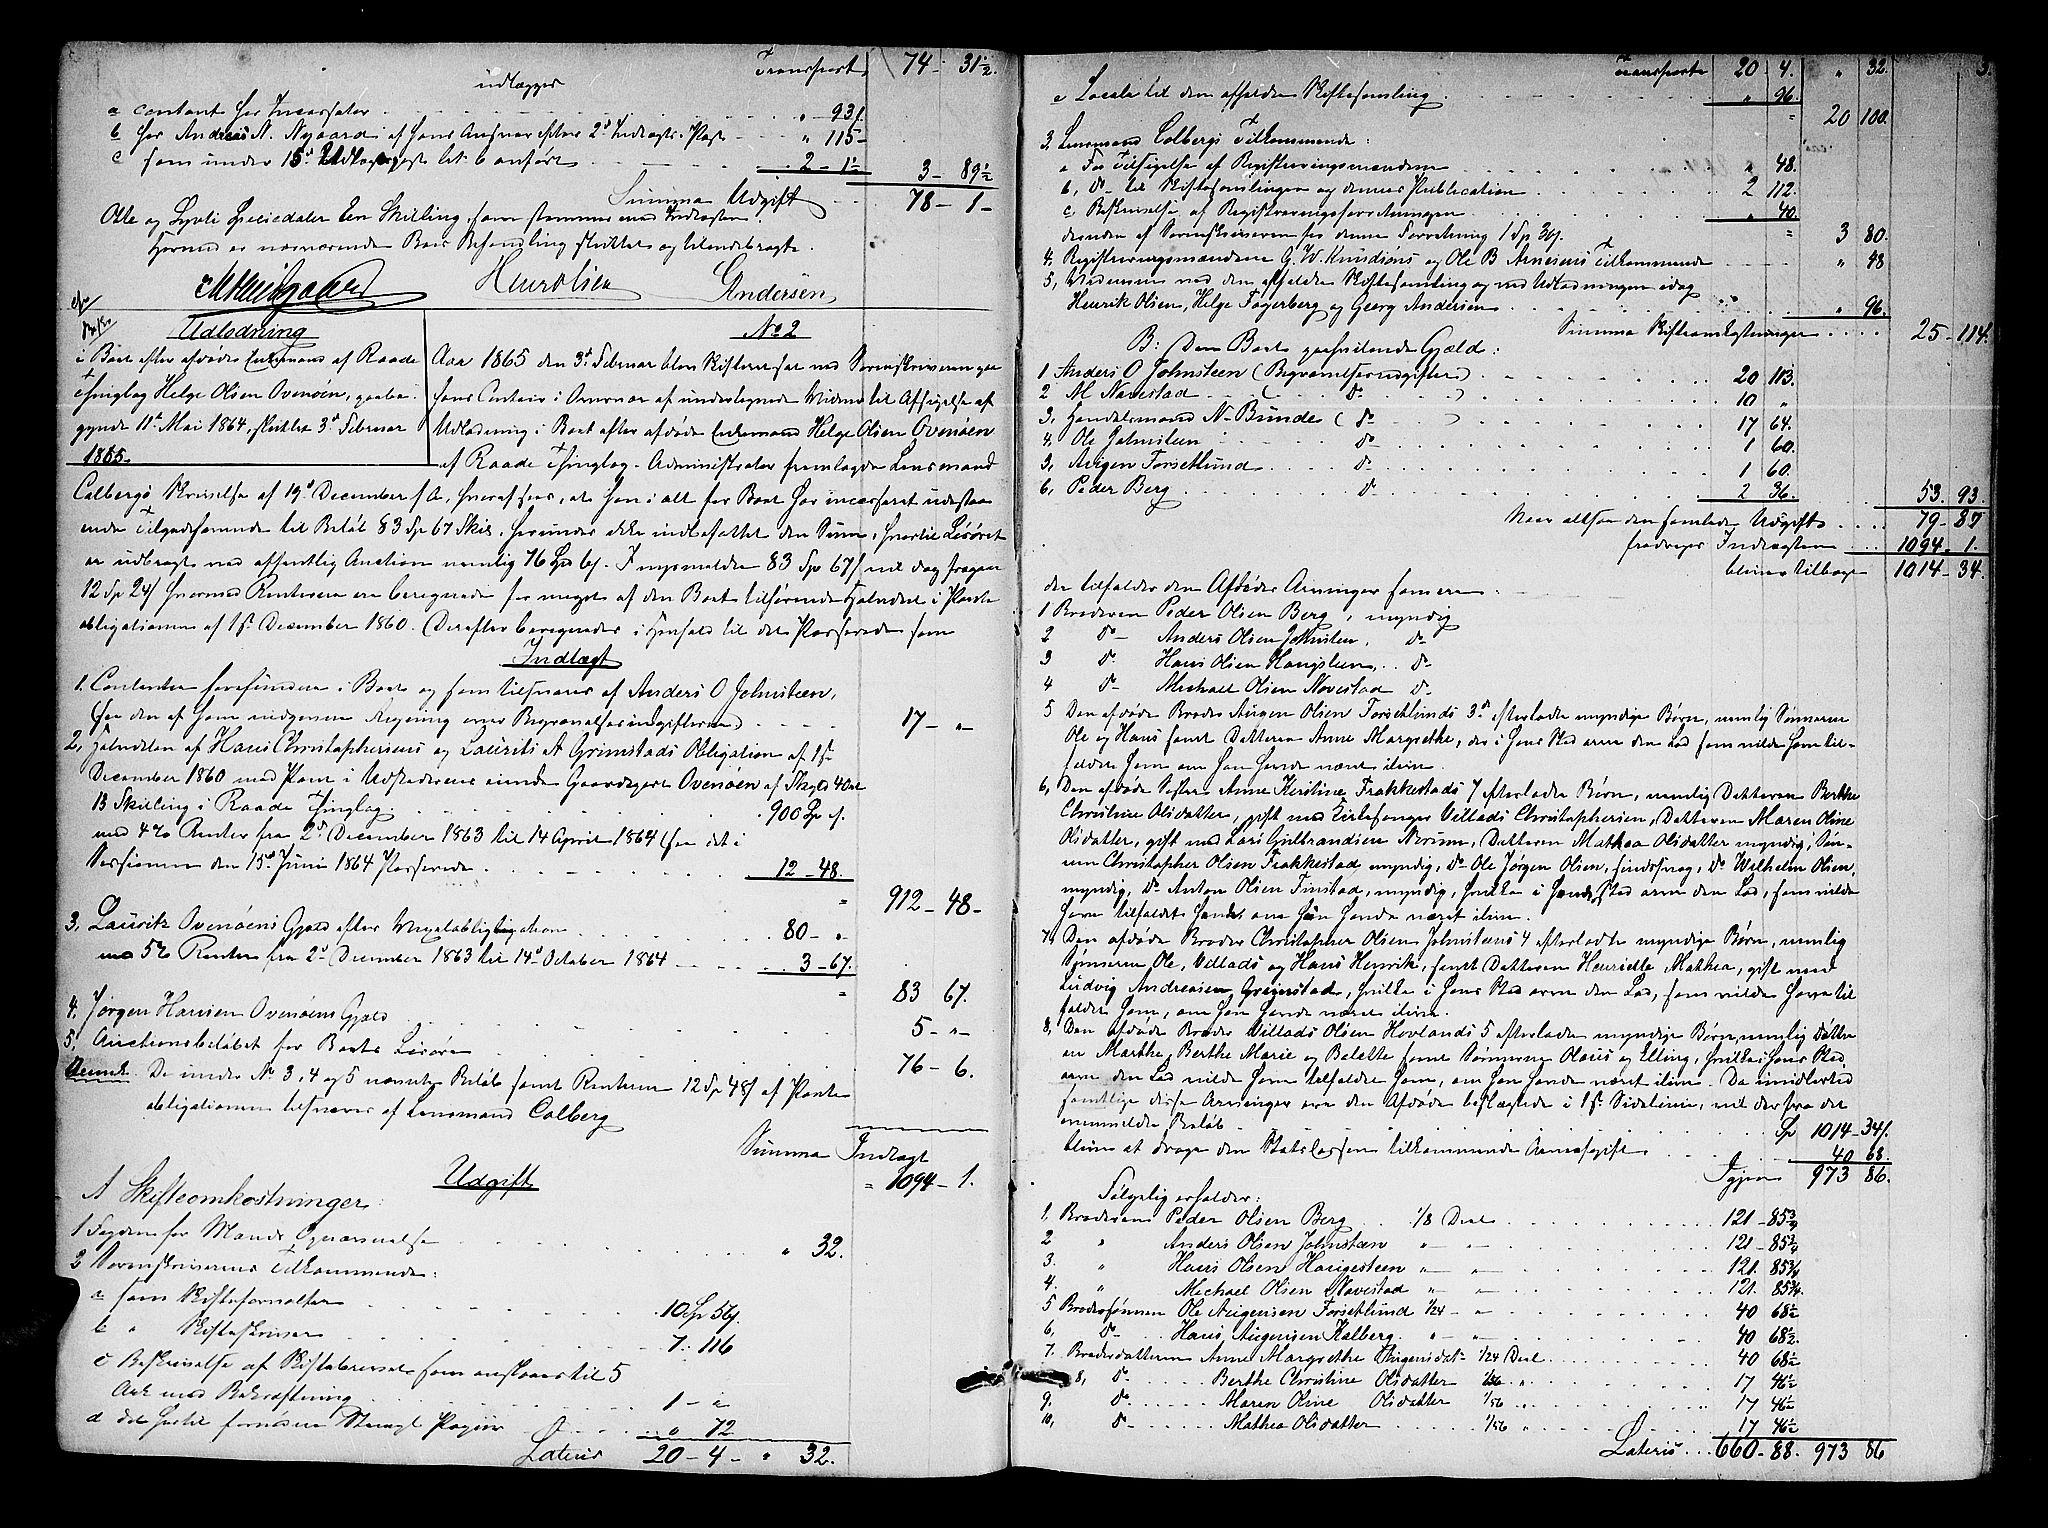 Transport 74 - 31½
udlægges
a contant hos Incassator - 93ſ.
b hos Andreas N. Nygaard af hans Ansvar efter 2d Indtægts-Post " 115 -
c som under 15d Udlægspost lit. b anført 2 - 1½ 3 - 89½
Summa Udgift 78 - 1 -
Otte og Syvti Speciedaler Een Skilling, som stemmer med Indtægten.
Hermed er nærværende Boes Behandling sluttet og tilendebragt.
Andersen
Udlodning
i Boet efter afdøde Enkemand af Raade
Thinglag Helge Olsen Ovenøen, paabe-
gyndt 11te Mai 1864, sluttet 3d Februar
1865.
No 2
Aar 1865 den 3d Februar blev Skifteret sat ved Sorenskriveren paa
hans Contoir i Overværelse af undertegnede Vidner til Afsigelse af
Udlodning i Boet efter afdøde Enkemand Helge Olsen Ovenøen
af Raade Thinglag. Administrator fremlagde Lensmand
Colbergs Skrivelse af 19d December f A, hvoraf sees, at han i alt for Boet har incasseret udestaa-
ende Tilgodehavende til Beløb 83 Sp 67 Skil, herunder ikke indbefattet den Sum, hvortil Løsøret
er udbragt ved offentlig Auction nemlig 76 Spd 6ſ. I nysmeldte 83 Sp 67ſ
12 Sp 24ſ hvormed Renterne ere beregnede for meget af den Boet tilhørende Halvdel i Pante-
obligationen af 1ste December 1860. Derefter beregnedes, i Henhold til det Passerede som
Indtægt
1. Contanter forefundne i Boet og som tilsvares af Anders O Johnsteen,
(see den af ham indgivne Regning over Begravelsesudgifterne) 17 - "
2, Halvdelen af Hans Christophersens og Laurits A Grimstads Obligation af 1ste
December 1860 med Pant i Udstederens eiende Gaardpart Ovenøen af Skyld 4 Ort
13 Skilling i Raade Thinglag 900 Sp ſ.
med 4% Renter fra 2d December 1863 til 14 April 1864 (see det i
Sessionen den 15d Juni 1864 Passerede 12 - 48.
" 912 - 48 -
3, Lauritz Ovenøens Gjæld efter Vexelobligation 80 - "
med 5% Renter fra 2d December 1863 til 14d October 1864 3 - 67.
" 83 67.
4. Jørgen Hansen Ovenøens Gjæld 5 - "
5. Auctionsbeløbet for Boets Løsøre 76 - 6.
Anmk. De under No 3, 4 og 5 nævnte Beløb samt Renterne 12 Sp 48ſ af Pante-
obligationen tilsvares af Lensmand Colberg
Summa Indtægt
" 1094 - 1.
Udgift
A Skifteomkostninger:
1 Fogden for Mænds Opnævnelse " 32.
2 Sorenskriverens Tilkommende:
a som Skifteforvalter 10 Sp 56ſ.
b " Skifteskriver 7. 116
c Beskrivelse af Skiftebrevet som ansættes til 5
Ark med Bekræftning 1 - "
d det hertil fornødne Stemplt Papiir " 72
Lateris 20 - 4 - " 32.
Transporte 20 4. " 32 3.
e Locale til den afholdte Skiftesamling " 96.
" 20 100.
3, Lensmand Colbergs Tilkommende:
a For Tilsigelse af Registreringsmændene " 48.
b, do til Skiftesamlingen og dennes Publication 2 112.
c, Beskrivelse af Registreringsforretningen " 40.
desuden af Sorenskriveren for denne Forretning 1 Sp 36ſ. " 3 80.
4, Registreringsmændene G. W. Knudsons og Ole B Arnesens Tilkommende " 48
5, Vidnerne ved den afholdte Skiftesamling og ved Udlodningen idag
Henrik Olsen, Helge Fagerberg og Georg Andersen " 96.
Summa Skifteomkostninger 25 - 114.
B: Den Boet paahvilende Gjæld:
1 Anders O Johnsteen (Begravelsesudgifter) 20 113.
2 M Navestad (do) 10 "
3, Handelsmand N. Bunde (do) 17 64.
4, Ole Johnsteen do 1 60.
5, Avigen Torsetlund do 1 60.
6, Peder Berg do 2 36. 53. 93.
Naar altsaa den samlede Udgift 79 - 87
fradrages Indtægten 1094 - 1.
bliver tilbage 1014 - 34.
der tilfalder den Afdødes Arvinger som ere
1 Broderen Peder Olsen Berg, myndig
2 do Anders Olsen Johnsteen, do
3 do Hans Olsen Haugsteen, do
4 do Michael Olsen Navestad do
5 Den afdøde Broder Augen Olsen Torsetlunds 3de efterladte myndige Børn, nemlig Sønnerne
Ole og Hans samt Datteren Anne Margrethe, der i hans Sted arve den Lod som vilde have til-
faldet ham om han havde været ilive.
6, Den afdøde Søster Anne Kirstine Frakkestads 7 efterladte Børn, nemlig Datteren Berthe
Christine Olsdatter, gift med Kirkesanger Villads Christophersen, Datteren Maren Oline
Olsdatter, gift med Lars Gulbrandsen Norum, Datteren Mathea Olsdatter myndig, Søn-
nen Christopher Olsen Frakkestad myndig, do Ole Jørgen Olsen, sindssvag, do Wilhelm Olsen,
myndig, do Anton Olsen Finstad, myndig, hvilke i hendes Sted arve den Lod, som vilde
have tilfaldt hende om hun havde været ilive.
7, Den afdøde Broder Christopher Olsen Johnsteens 4 efterladte myndige Børn, nemlig
Sønnerne Ole, Villads og Hans Henrik, samt Datteren Henriette Mathea, gift med
Ludvig Andreasen Grimstad, hvilke i hans Sted arve den Lod, som vilde have til
faldet ham, om han havde været ilive.
8, Den afdøde Broder Villads Olsen Hovlands 5 efterladte myndige Børn, nemlig Døttre-
ne Marthe, Berthe Marie og Beletle samt Sønnerne Olaus og Elling, hvilke i hans Sted
arve den Lod vilde have tilfaldet ham, om han havde været ilive. Da imidlertid
samtlige disse Arvinger ere den Afdøde beslægtede i 1ste Sidelinie, vil der fra det
ovenmeldte Beløb Sp 1014 - 34ſ.
blive at drage den Statscassen tilkommende Arveafgift 40 68.
Igjen 973 86.
Følgelig erholder:
1, Broderen Peder Olsen Berg 1/8 Deel 121 - 85¾
2 " Anders Olsen Johnsteen " " 121 - 85¾
3. " Hans Olsen Haugesteen " " 121. 85¾
4. " Michael Olsen Navestad " " 121. 85¾
5 Brodersønnen Ole Augensen Torsetlund 1/24 " 40 68½
6, do Hans Augensen Kalberg " " 40 68½
7. Broderdatteren Anne Margrethe Augensdat. 1/24 Deel 40 68½
8, do Berthe Christine Olsdatter 1/56 " 17 46½
9, do Maren Oline Olsdatter 1/56 " 17 46½
10, do Mathea Olsdatter 1/56 " 17 46½
Lateris 660 - 88. 973 86